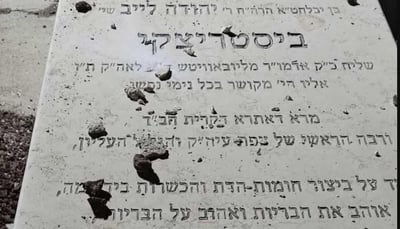 בן יבלחט"א הרה"ח ר' יהודה לייב שי'
ביסטריצקי
שליח כ"ק אדמו"ר מליובאוויטש לאה"ק ת"ו
אליו הי' מקושר בכל נימי נפשו
מרא דאתרא בקרית חב"ד
ורבה הראשי של צפת עיה"ק והגליל העליון,
על ביצור חומות הדת והכשרות
אוהב את הבריות ואהוב על הבריות